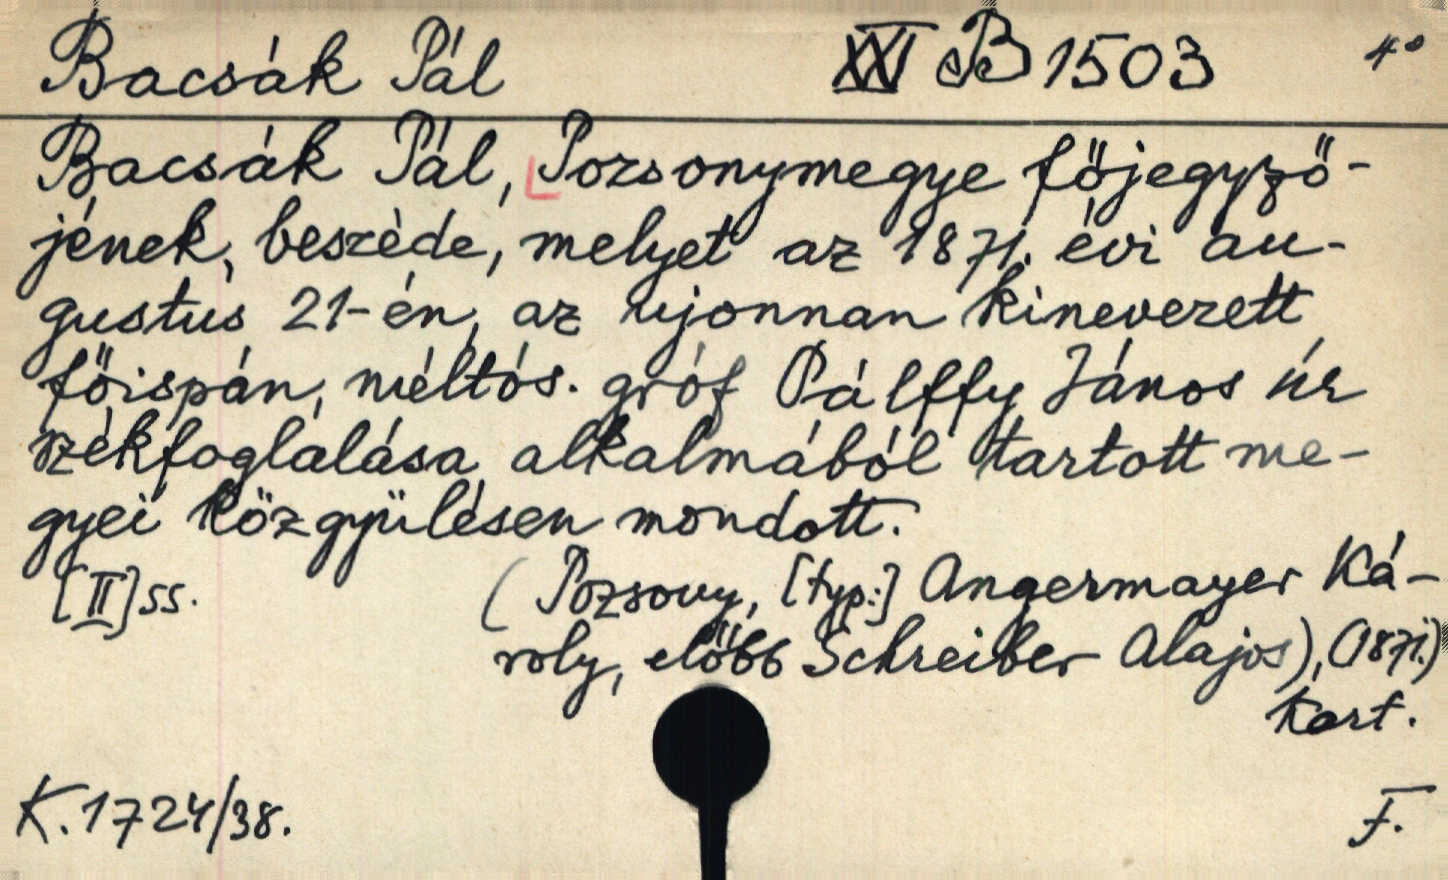 Bacsák Pál XXI B 1503 4°
Bacsák Pál, Pozsonymegye főjegyző-
jének, beszéde, melyet az 1871. évi au-
gustus 21-én, az ujonnan kinevezett
főispán, méltós. gróf Pálffy János úr
székfoglalása alkalmából tartott me-
gyei közgyülésen mondott.
[II] ss. (Pozsony, [typ:] Angermayer Ká-
roly, előbb Schreiber Alajos), (1871.)
Kart.
K. 1724/38. F.